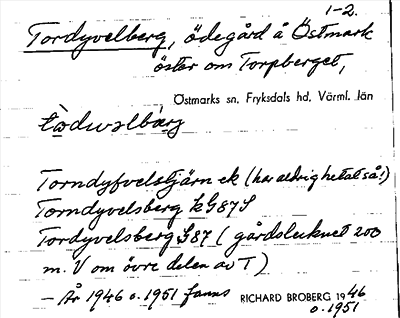 1-2.
Tordyvelberg, ödegård å Östmark
öster om Torpberget,
Östmarks sn, Fryksdals hd, Värml. län
Torndyfvelstjärn ek (har aldrig hetat så!)
Torndyvelsberg k G 87 S
Tordyvelsberg G87 (gårdstecknet 200
m. V om övre delen av T)
- År 1946 o. 1951 fanns
RICHARD BROBERG 1946
o. 1951